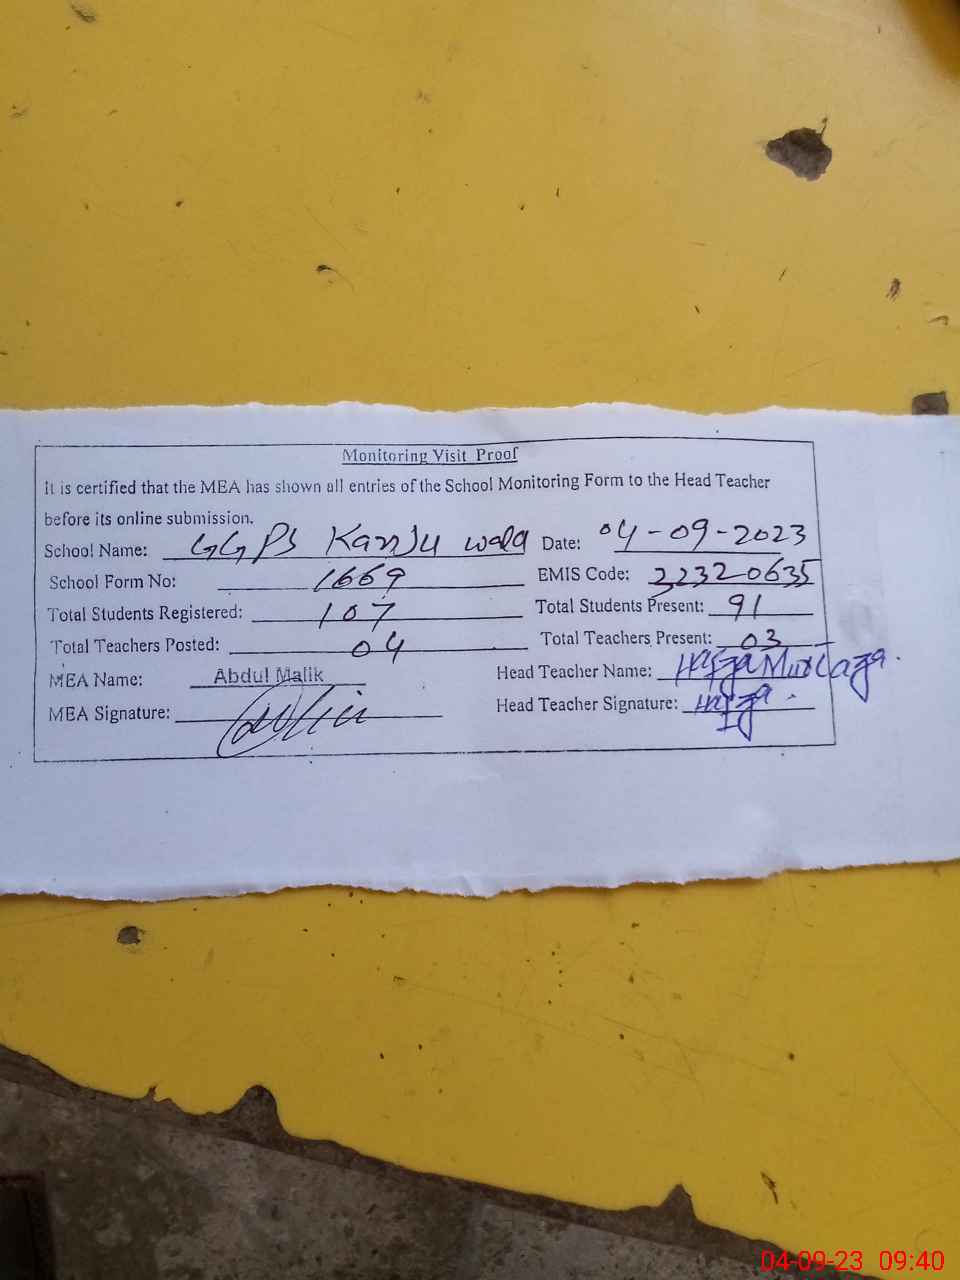 Monitoring Visit Proof
It is certified that the MEA has shown all entries of the School Monitoring Form to the Head Teacher
before its online submission.
School Name: GGPS Kanju wala Date: 04-09-2023
School Form No: 1669 EMIS Code: 32320635
Total Students Registered: 107 Total Students Present: 91
Total Teachers Posted: 04 Total Teachers Present: 03
MEA Name: Abdul Malik Head Teacher Name: Hafza Murtaza.
MEA Signature: Head Teacher Signature: Hafza.
04-09-23 09:40